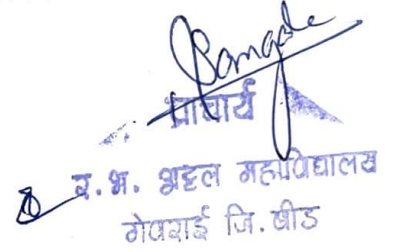 प्राचार्य
र.भ. अट्टल महाविद्यालय
गेवराई जि.बीड